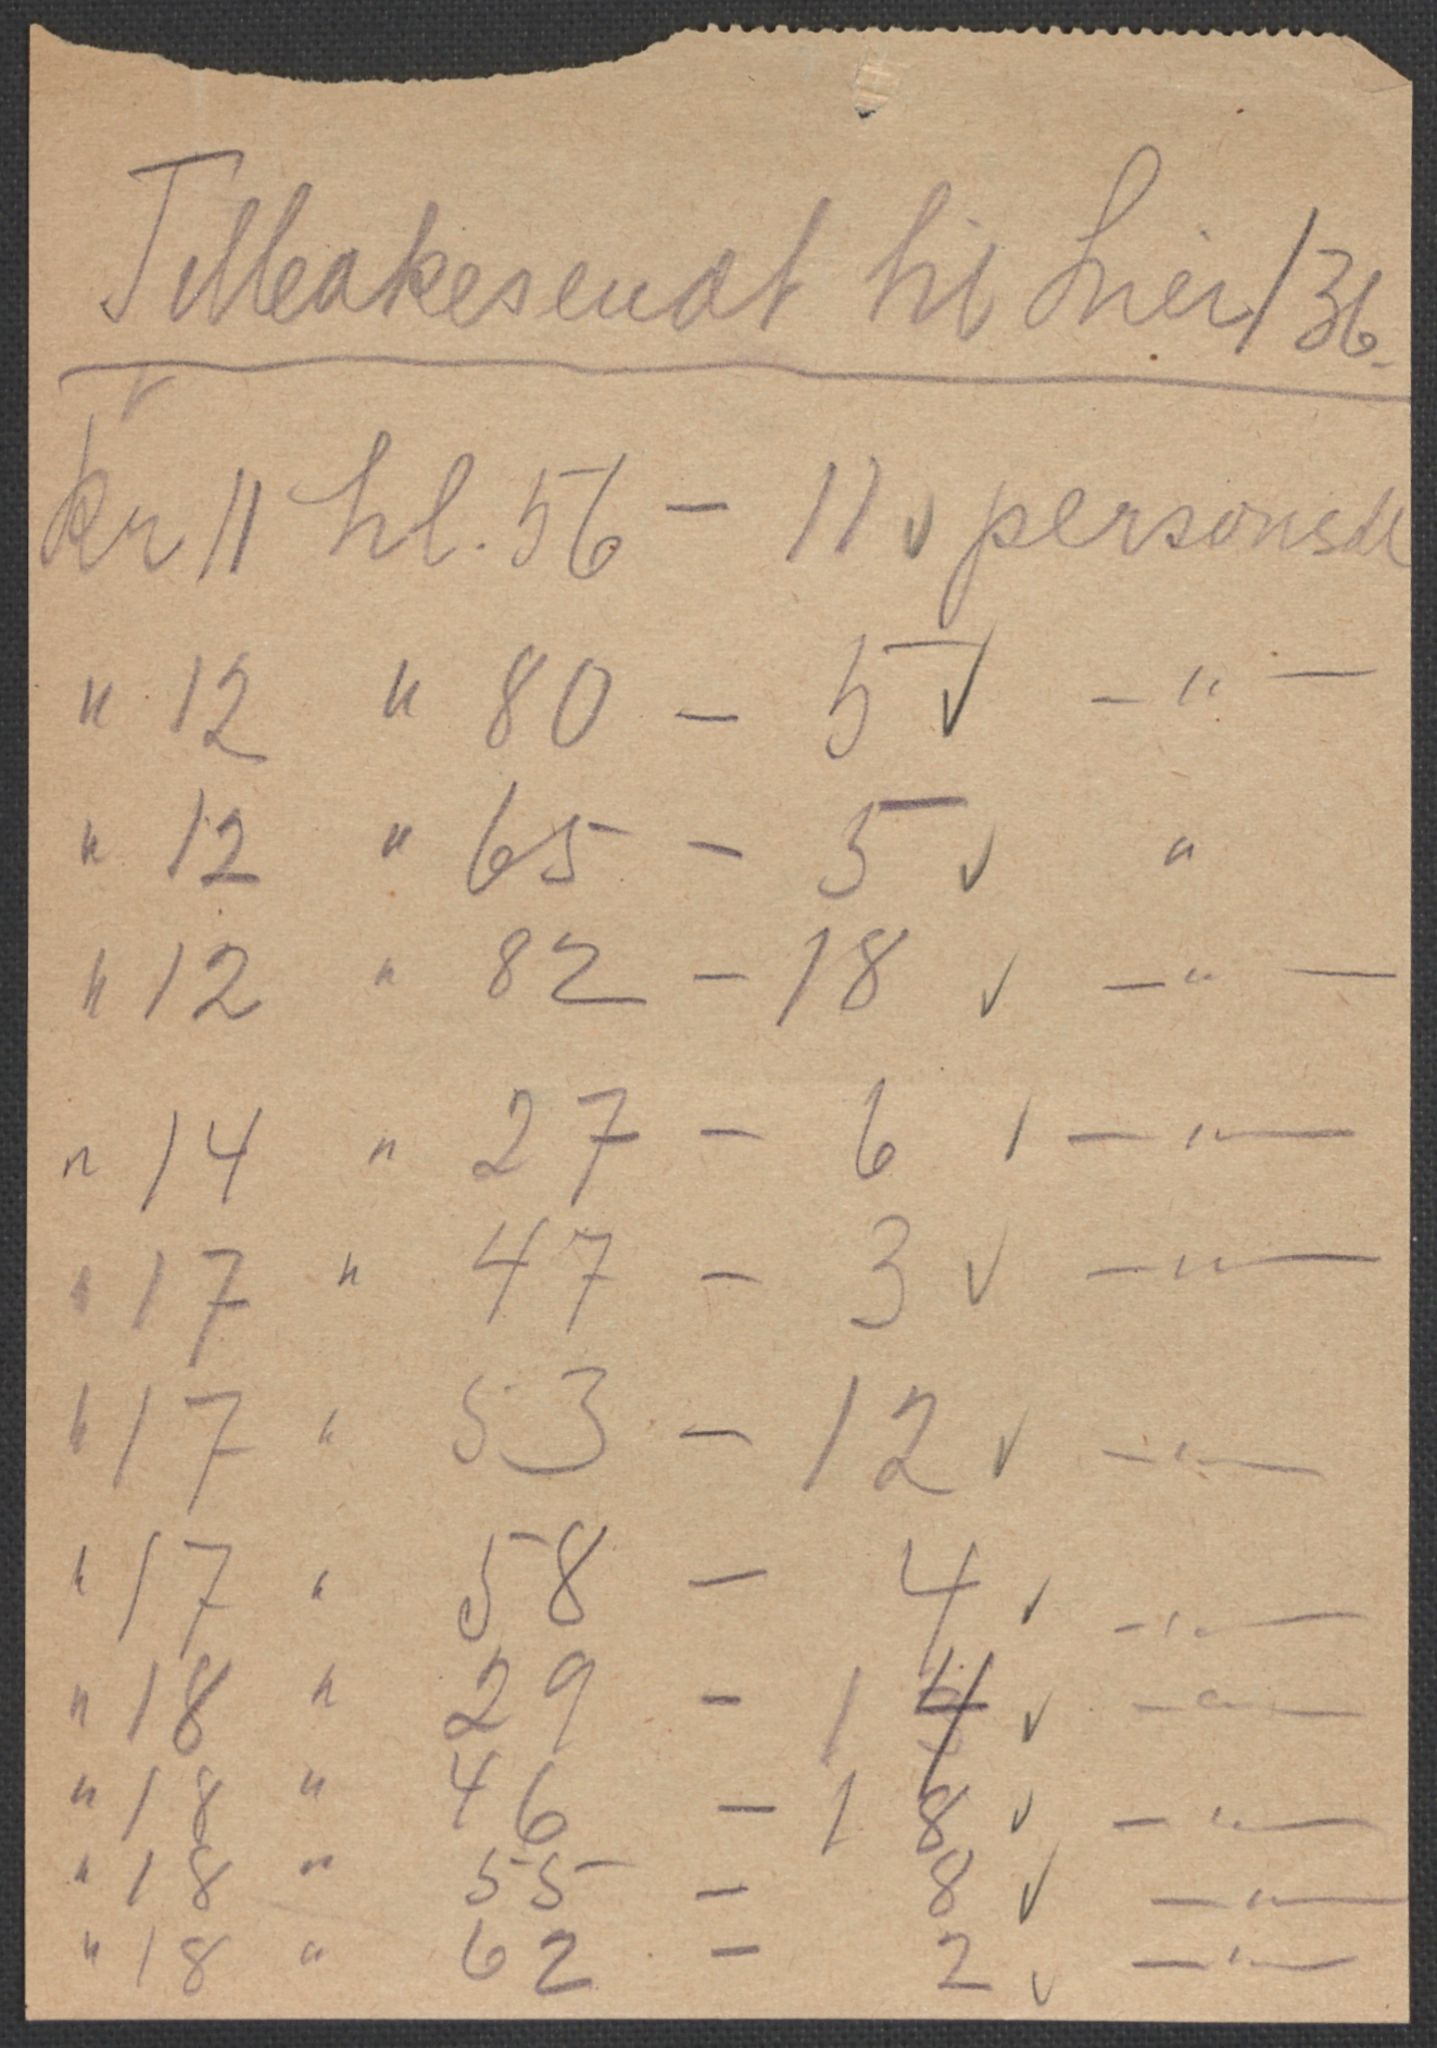 Tilbakesendt til Lier / 36.
kr 11 hl. 56 - 11 ✓ personsdl
" 12 " 80 - 5 ✓ - " -
" 12 " 65 - 5 ✓ "
" 12 " 82 - 18 ✓ - " -
" 14 " 27 - 6 ✓ - " -
" 17 " 47 - 3 ✓ - " -
" 17 " 53 - 12 ✓ - " -
" 17 " 58 - 4 ✓ - " -
" 18 " 29 - 14 ✓ - " -
" 18 " 46 - 18 ✓ - " -
" 18 " 55 - 8 ✓ - " -
" 18 " 62 - 2 ✓ - " -